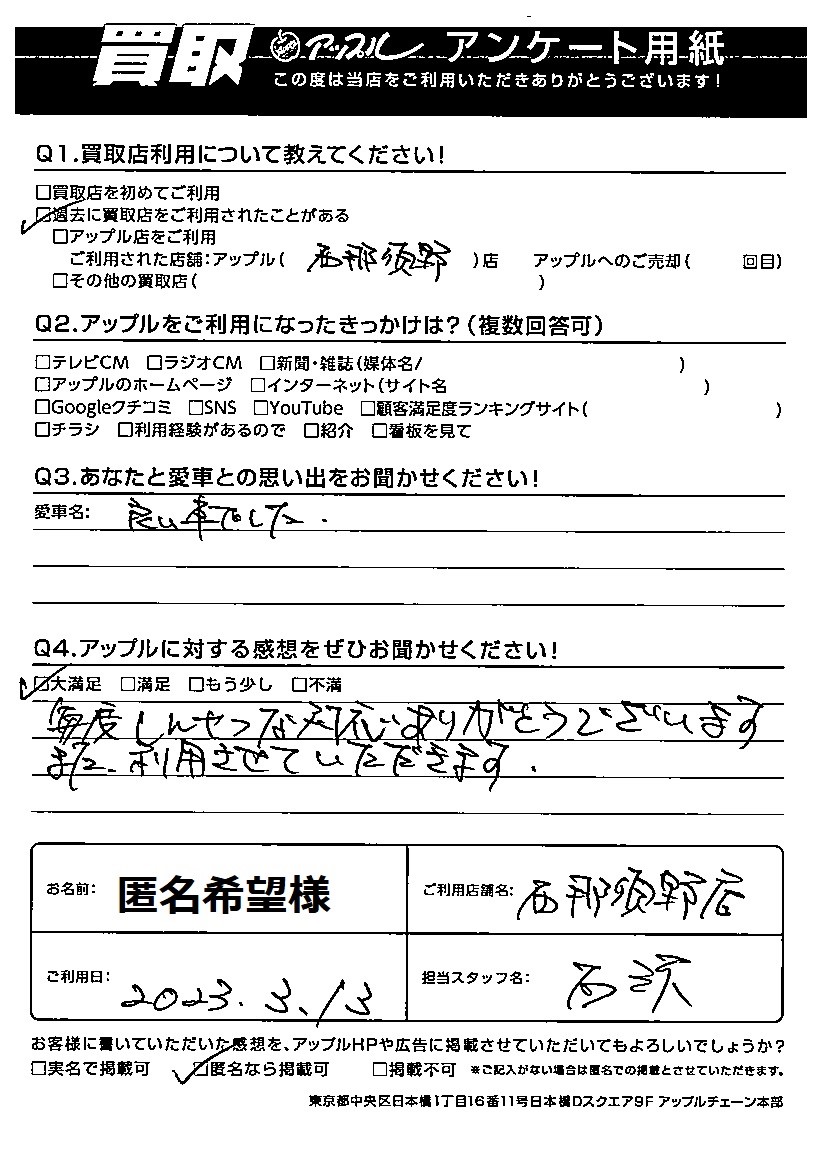 買取 アップル アンケート用紙
この度は当店をご利用いただきありがとうございます!
Q1.買取店利用について教えてください!
□買取店を初めてご利用
☑過去に買取店をご利用されたことがある
□アップル店をご利用
ご利用された店舗:アップル( 西那須野 )店 アップルへのご売却( 回目)
□その他の買取店( )
Q2.アップルをご利用になったきっかけは?(複数回答可)
□テレビCM □ラジオCM □新聞・雑誌(媒体名/ )
□アップルのホームページ □インターネット(サイト名 )
□Googleクチコミ □SNS □YouTube □顧客満足度ランキングサイト( )
□チラシ □利用経験があるので □紹介 □看板を見て
Q3.あなたと愛車との思い出をお聞かせください!
愛車名: 良い車でした.
Q4.アップルに対する感想をぜひお聞かせください!
☑大満足 □満足 □もう少し □不満
毎度しんせつな対応ありがとうございます
また、利用させていただきます.
お名前: 匿名希望様 ご利用店舗名: 西那須野店
ご利用日: 2023.3.13 担当スタッフ名:
お客様に書いていただいた感想を、アップルHPや広告に掲載させていただいてもよろしいでしょうか?
□実名で掲載可 ☑匿名なら掲載可 □掲載不可 ※ご記入がない場合は匿名での掲載とさせていただきます。
東京都中央区日本橋1丁目16番11号日本橋Dスクエア9F アップルチェーン本部